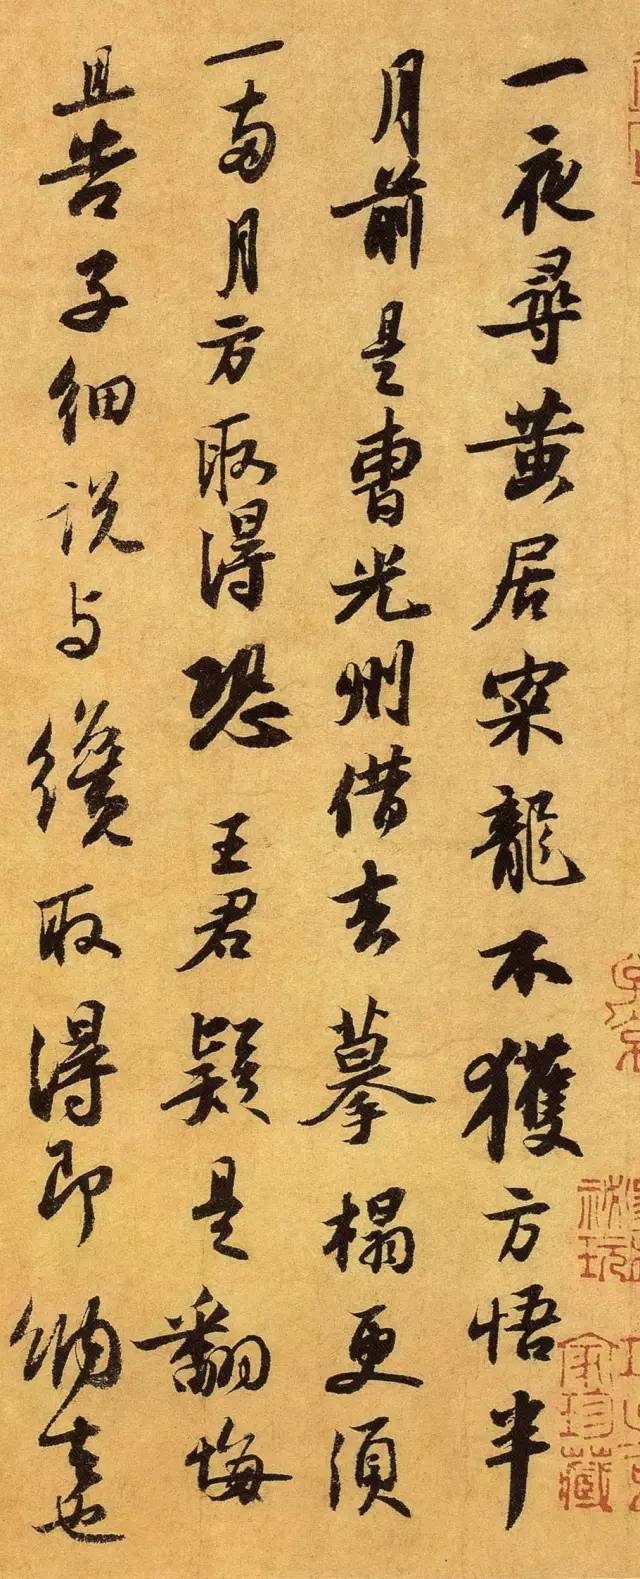 一夜尋黃居寀龍不獲方悟半
月前是曹光州借去摹搨更須
一兩月方取得恐王君疑是翻悔
且告子細說与纔取得即納去也
家珍藏